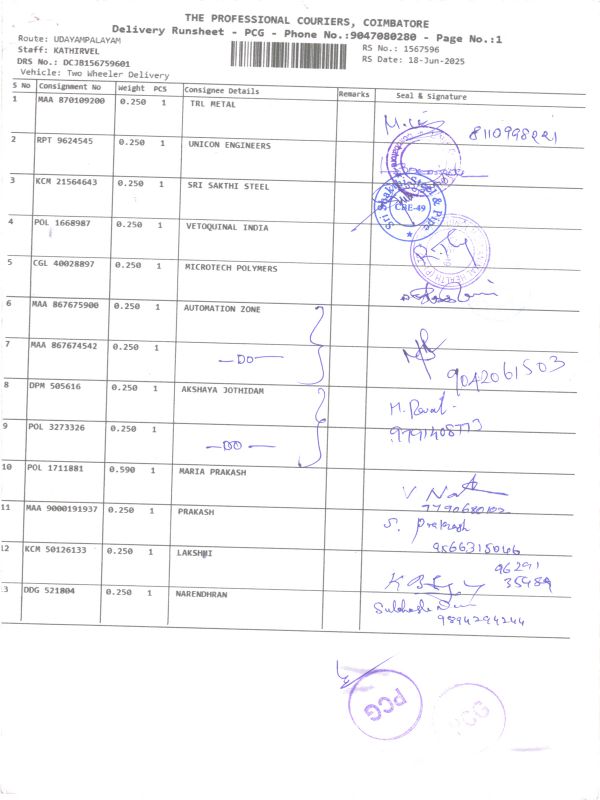 THE PROFESSIONAL COURIERS, COIMBATORE
Delivery Runsheet - PCG - Phone No.:9047080280 - Page No.:1
Route: UDAYAMPALAYAM
Staff: KATHIRVEL RS No.: 1567596
DRS No.: DCJ8156759601 RS Date: 18-Jun-2025
Vehicle: Two Wheeler Delivery
S No Consignment No Weight PCS Consignee Details Remarks Seal & Signature
1 MAA 870109200 0.250 1 TRL METAL
8110998221
2 RPT 9624545 0.250 1 UNICON ENGINEERS
3 KCM 21564643 0.250 1 SRI SAKTHI STEEL
Sri Sakthi Steel & Pipe
CBE-49
4 POL 1668987 0.250 1 VETOQUINAL INDIA
5 CGL 40028897 0.250 1 MICROTECH POLYMERS
6 MAA 867675900 0.250 1 AUTOMATION ZONE
7 MAA 867674542 0.250 1 —DO—
9042061503
8 DPM 505616 0.250 1 AKSHAYA JOTHIDAM
9 POL 3273326 0.250 1 —DO—
10 POL 1711881 0.590 1 MARIA PRAKASH
11 MAA 9000191937 0.250 1 PRAKASH
S. Prakash
9566315046
12 KCM 50126133 0.250 1 LAKSHMI
96291
35489
3 DDG 521804 0.250 1 NARENDHRAN
9894294244
PCG
PCG